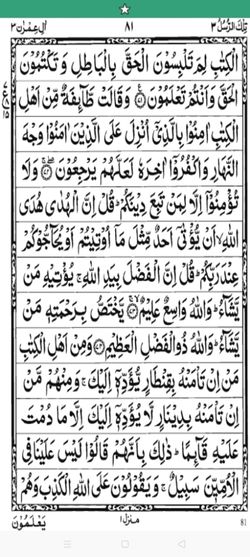 تِلْكَ الرُّسُلُ ٣ ٨١ اٰلِ عِمْرٰن ٣
الْكِتٰبِ لِمَ تَلْبِسُوْنَ الْحَقَّ بِالْبَاطِلِ وَ تَكْتُمُوْنَ
الْحَقَّ وَاَنْتُمْ تَعْلَمُوْنَ ۝ وَقَالَتْ طَّآئِفَةٌ مِّنْ اَهْلِ
الْكِتٰبِ اٰمِنُوْا بِالَّذِيْٓ اُنْزِلَ عَلَى الَّذِيْنَ اٰمَنُوْا وَجْهَ
النَّهَارِ وَاكْفُرُوْٓا اٰخِرَهٗ لَعَلَّهُمْ يَرْجِعُوْنَ ۝ وَلَا
تُؤْمِنُوْٓا اِلَّا لِمَنْ تَبِعَ دِيْنَكُمْ ؕ قُلْ اِنَّ الْهُدٰى هُدَى
اللّٰهِ ۙ اَنْ يُّؤْتٰٓى اَحَدٌ مِّثْلَ مَآ اُوْتِيْتُمْ اَوْ يُحَآجُّوْكُمْ
عِنْدَ رَبِّكُمْ ؕ قُلْ اِنَّ الْفَضْلَ بِيَدِ اللّٰهِ ۚ يُؤْتِيْهِ مَنْ
يَّشَآءُ ؕ وَاللّٰهُ وَاسِعٌ عَلِيْمٌ ۝ يَّخْتَصُّ بِرَحْمَتِهٖ مَنْ
يَّشَآءُ ؕ وَاللّٰهُ ذُو الْفَضْلِ الْعَظِيْمِ ۝ وَمِنْ اَهْلِ الْكِتٰبِ
مَنْ اِنْ تَاْمَنْهُ بِقِنْطَارٍ يُّؤَدِّهٖٓ اِلَيْكَ ۚ وَمِنْهُمْ مَّنْ
اِنْ تَاْمَنْهُ بِدِيْنَارٍ لَّا يُؤَدِّهٖٓ اِلَيْكَ اِلَّا مَا دُمْتَ
عَلَيْهِ قَآئِمًا ؕ ذٰلِكَ بِاَنَّهُمْ قَالُوْا لَيْسَ عَلَيْنَا فِي
الْاُمِّيّٖنَ سَبِيْلٌ ۚ وَيَقُوْلُوْنَ عَلَى اللّٰهِ الْكَذِبَ وَهُمْ
يَعْلَمُوْنَ منزل ١ 81